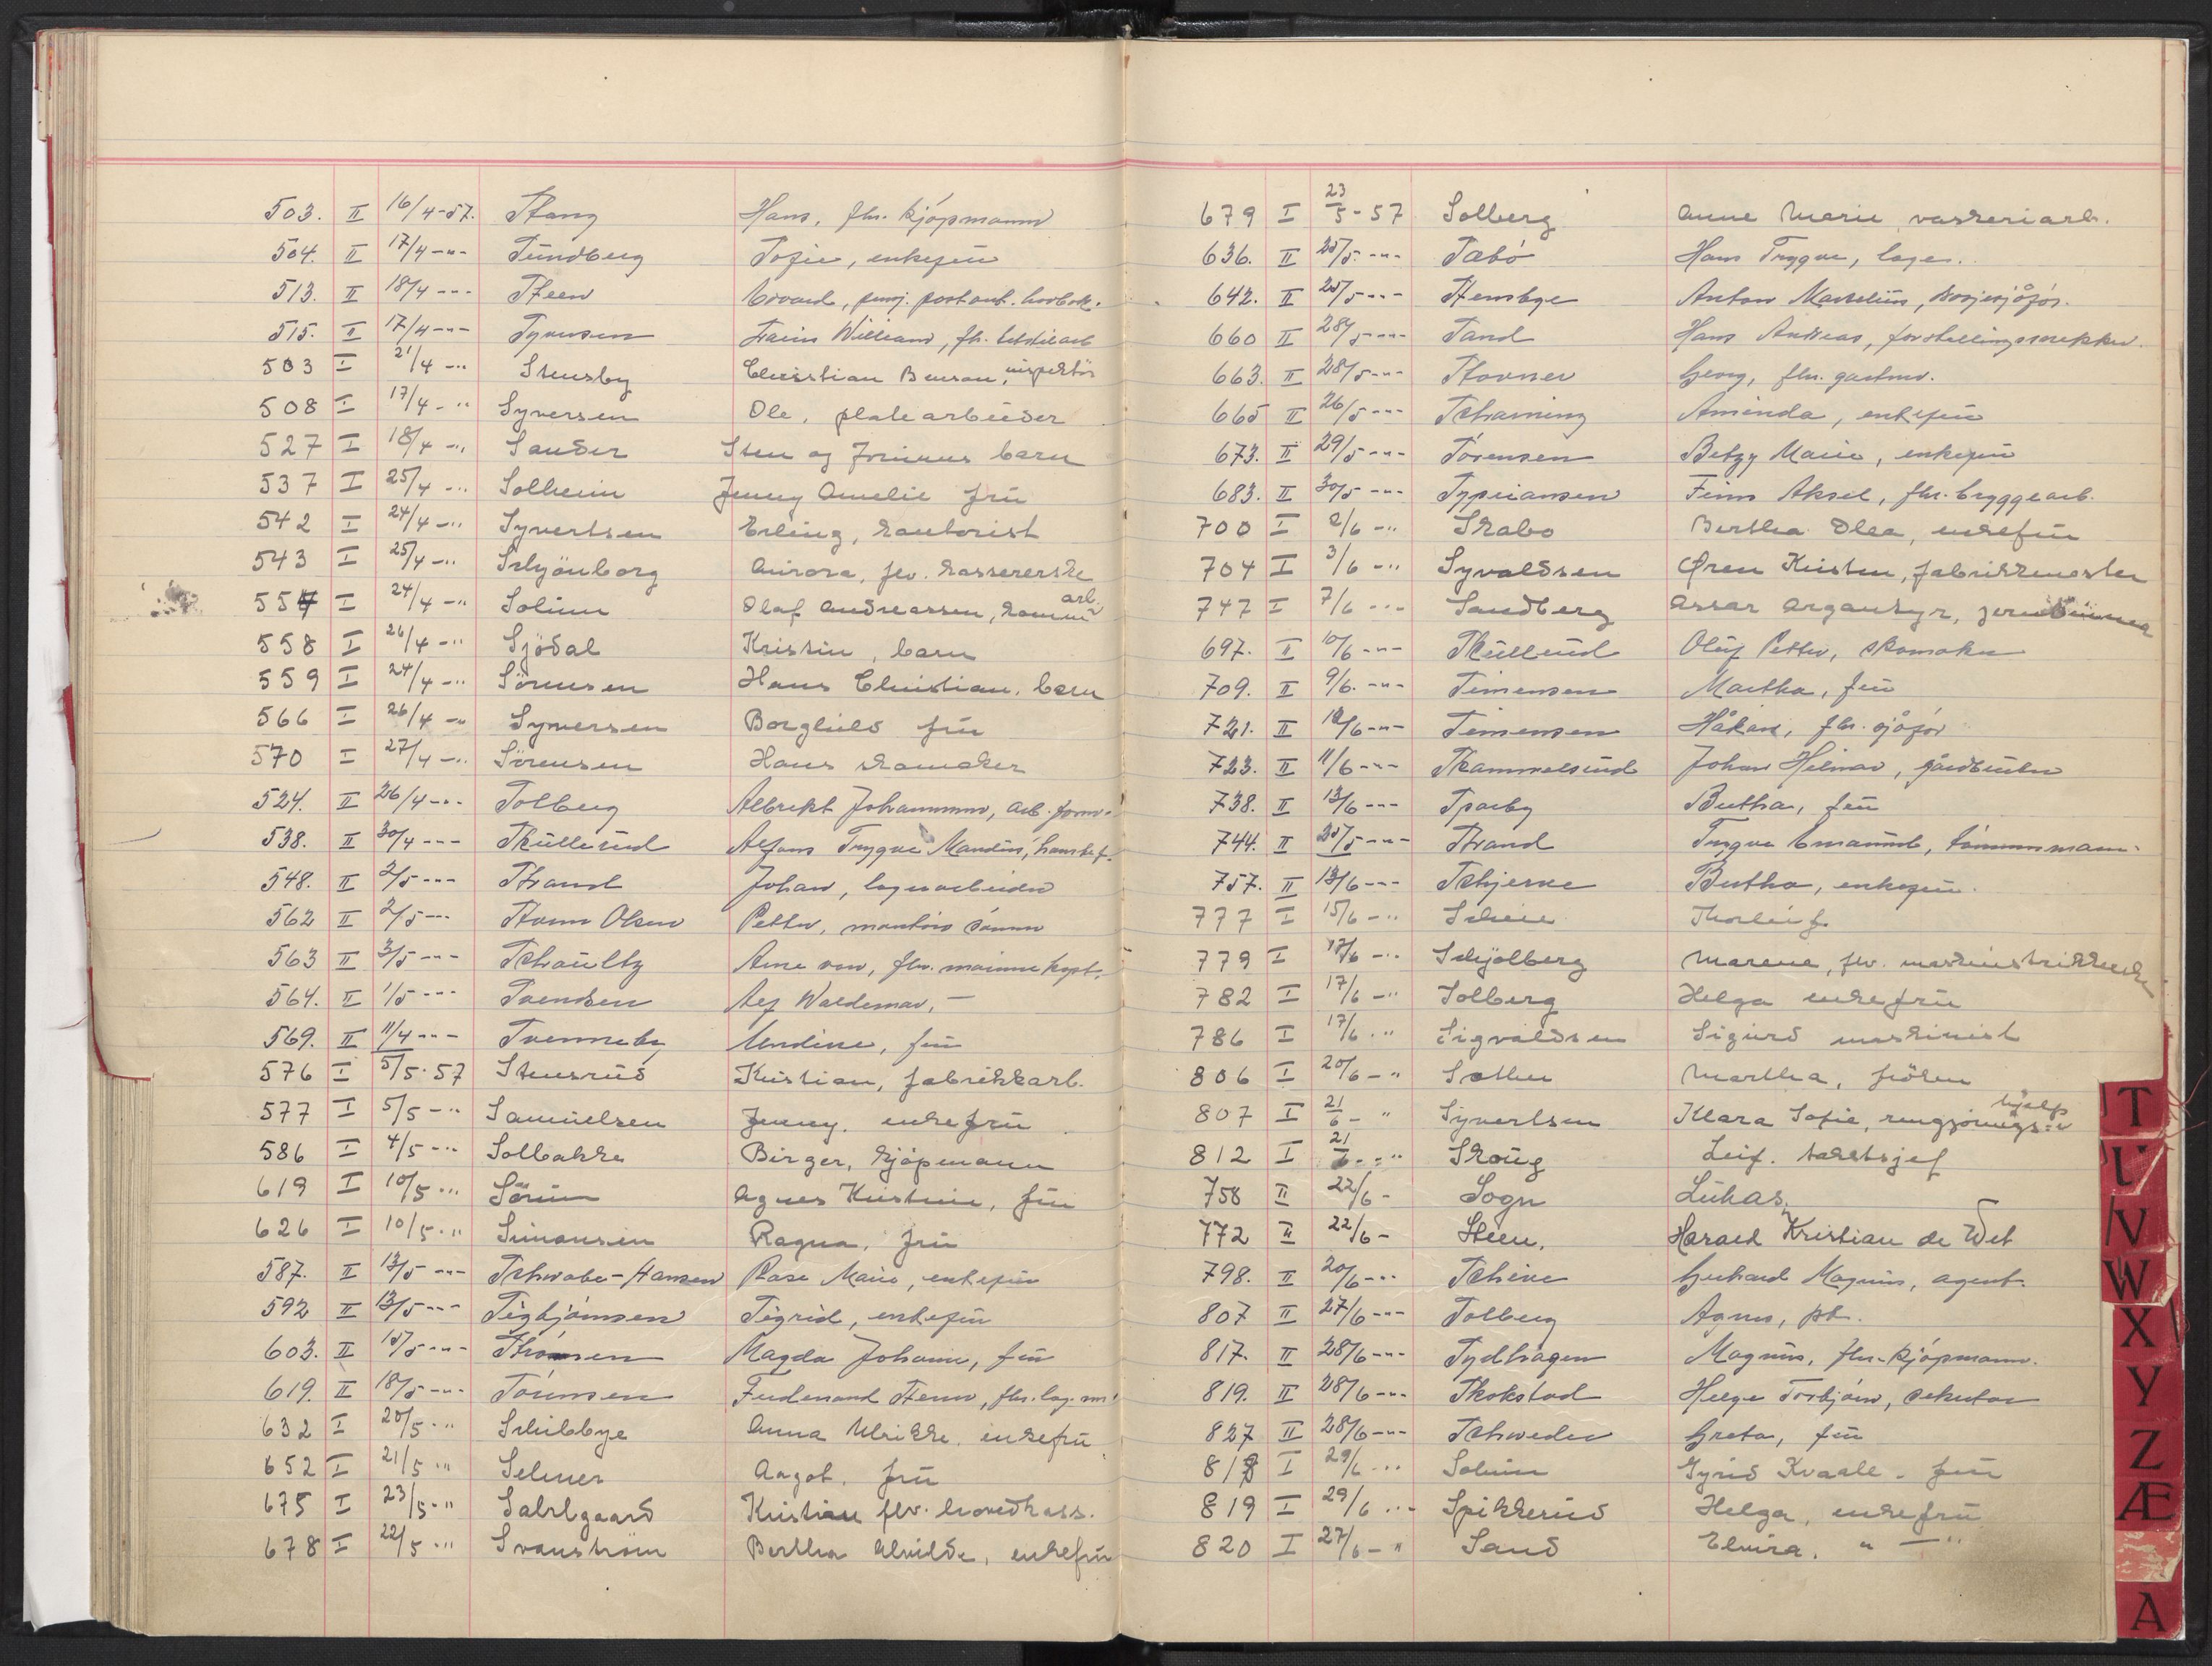 503. II 16/4-57. Stang Hans, fhv. kjøpmann
504. II 17/4 -"- Sundberg Sofie, enkefru
513. II 18/4 -"- Steen pensj.
515. II 17/4 -"- Syversen William, fh. tekstilarb
503 I 21/4 -"- Stensby Christian Benson, inspektør
508 I 17/4 -"- Syversen Ole, platearbeider
527 I 18/4 -"- Sander Sten og barn
537 I 25/4 -"- Solheim Jenny Amelie fru
542 I 24/4 -"- Syvertsen Erling, kontorist
543 I 25/4 -"- Schjönborg Aurora, fhv. kassererske
557 I 24/4 -"- Solum Olaf Andreassen, komm. arb.
558 I 26/4 -"- Sjödal Kristin, barn
559 I 24/4 -"- Sörensen Hans Christian, barn
566 I 26/4 -"- Syversen Borghild fru
570 I 27/4 -"- Sörensen Hans skomaker
524. II 26/4 -"- Solberg Albrekt Johannessen, arb. form.
538. II 30/4 -"- Skullerud Alfons Trygve
548. II 2/5 -"- Strand Johan, lagerarbeider
562 II 2/5 -"- Olsen Petter,
563 II 3/5 -"- Schoultz Arne von, fhv. marine kapt.
564. II 1/5 -"- Svendsen Alf Waldemar, —
569. II 11/4 -"- Svenneby Undine, fru
576 I 5/5-57 Stensrud Kristian, fabrikkarb.
577 I 5/5 -"- Samuelsen Jenny. enkefru
586 I 4/5 -"- Solbakke Birger, kjøpmann
619 I 10/5 -"- Sörum Agnes Kristine, fru
626 I 10/5 -"- Simonsen Ragna, fru
587. II 13/5 -"- Schwabe-Hansen Rosa Marie, enkefru
592 II 13/5 -"- Sigbjörnsen Sigrid, enkefru
603. II 15/5 -"- Magda Johanne, fru
619. II 18/5 -"- Sörensen Ferdinand
632 I 20/5 -"- Schibbye Anna Ulrikke, enkefru
652 I 21/5 -"- Selmer Aagot. fru
675 I 23/5 -"- Kristian fhv. hovedkass.
678 I 22/5 -"- Svanström Bertha Alvilde, enkefru
679 I 23/5-57 Solberg Anne Marie vaskeriarb.
636. II 25/5 -"- Sæbö Hans Trygve, lager.
642. II 25/5 -"- Stensbye Anton Marselius,
660 II 28/5 -"- Sand Hans Andreas,
663. II 28/5 -"- Stovner Georg, fhv. gartner.
665 II 26/5 -"- Schrøning Aminda, enkefru
673. II 29/5 -"- Sörensen Betzy Marie, enkefru
683. II 30/5 -"- Sypriansen Finn Aksel, fhv. bryggearb.
700 I 2/6 -"- Skabo Bertha Olea, enkefru
704 I 3/6 -"- Syvaldsen Ören Kristen, fabrikkmester
747 I 7/6 -"- Sandberg Assar Argantyr,
697. II 10/6 -"- Skullerud Oluf Petter, skomaker
709. II 9/6 -"- Simensen Martha, fru
721. II 12/6 -"- Simensen Håkon, fhv. sjåför
723. II 11/6 -"- Skammelsrud Johan Hilmar, gårdbruker
738. II 13/6 -"- Sparby Bertha, fru
744. II 25/5 -"- Strand Trygve Emanuel, tömmermann
757. II 13/6 -"- Schjerve Bertha, enkefru.
777 I 15/6 -"- Scheie Thorleif.
779 I 17/6 -"- Schjølberg Marene, fhv. maskinstrikkerske
782 I 17/6 -"- Solberg Helga enkefru
786 I 17/6 -"- Sigvaldsen Sigurd maskinist
806 I 20/6 -"- Sæther Martha, fröken
807 I 21/6 -" Syvertsen Klara Sofie, rengjörings= hjelp
812 I 21/6 -" Skoug Leif. takstsjef
758 II 22/6 - Sogn Lukas
772 II 22/6 - Steen, Harald Kristian de Wet
798. II 20/6 -"- Scheve Gerhard Magnus, agent.
807 II 27/6 -"- Solberg Agnes,
817. II 28/6 -"- Sydhagen Magnus, fhv. kjøpmann.
819. II 28/6 -"- Skokstad Helge Torbjörn,
827 II 28/6 -"- Schweder Greta, fru
818 I 29/6 -"- Solum Gyrid Kvaale. fru
819 I 29/6 -"- Spikkerud Helga, enkefru
820 I 27/6 -" Sand Elvira. " — "
T
U
V
W
X
Y
Z
Æ
A